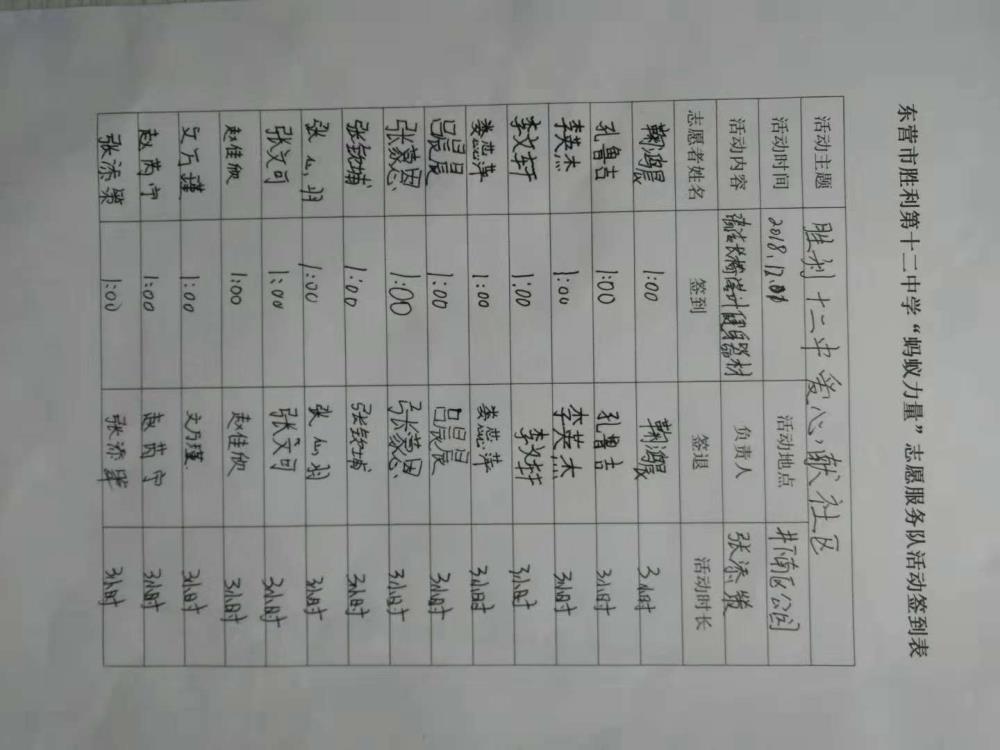 东营市胜利第十二中学“蚂蚁力量”志愿服务队活动签到表
活动主题 胜利十二中爱心献社区
活动时间 2018.12.01 活动地点 井下南区公园
活动内容 清洁长椅健身器材 负责人 张添
志愿者姓名 签到 签退 活动时长
鞠鸿辰 1:00 鞠鸿辰 3小时
孔鲁吉 1:00 孔鲁吉 3小时
李英杰 1:00 李英杰 3小时
李文轩 1:00 李文轩 3小时
娄蕊萍 1:00 娄蕊萍 3小时
吕晨晨 1:00 吕晨晨 3小时
张蒙恩 1:00 张蒙恩 3小时
张铭埔 1:00 张铭埔 3小时
张仙羽 1:00 张仙羽 3小时
张文可 1:00 张文可 3小时
赵佳欣 1:00 赵佳欣 3小时
文万瑾 1:00 文万瑾 3小时
赵芮宁 1:00 赵芮宁 3小时
张添 1:00 张添 3小时